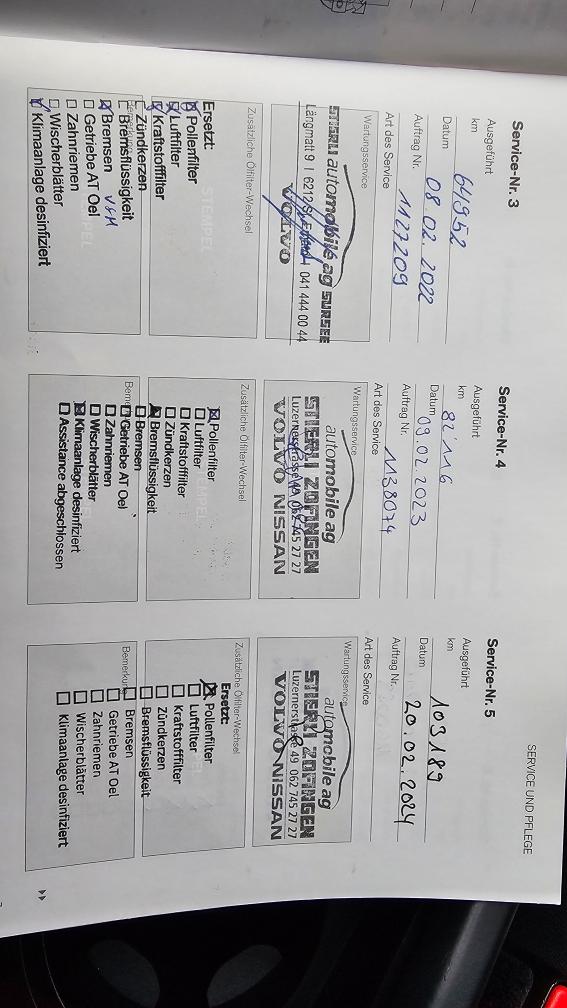 SERVICE UND PFLEGE
Service-Nr. 3
Ausgeführt
km 64952
Datum 08.02.2022
Auftrag Nr. 1127209
Art des Service
Wartungsservice
STIERLI automobile ag SURSEE
Längmatt 9 | 6212 St. Erhard | 041 444 00 44
VOLVO
Zusätzliche Ölfilter-Wechsel
STEMPEL
Ersetzt:
☒ Pollenfilter
☒ Luftfilter
☒ Kraftstofffilter
☐ Zündkerzen
☐ Bremsflüssigkeit
☒ Bremsen
☐ Getriebe AT Oel
☐ Zahnriemen
☐ Wischerblätter
☒ Klimaanlage desinfiziert
Service-Nr. 4
Ausgeführt
km 82'116
Datum 09.02.2023
Auftrag Nr. 1138074
Art des Service
Wartungsservice
automobile ag
STIERLI ZOFINGEN
Luzernerstrasse 49 062 745 27 27
VOLVO NISSAN
Zusätzliche Ölfilter-Wechsel
☒ Pollenfilter
☐ Luftfilter
☐ Kraftstofffilter
☐ Zündkerzen
☒ Bremsflüssigkeit
☐ Bremsen
☐ Getriebe AT Oel
☐ Zahnriemen
☐ Wischerblätter
☒ Klimaanlage desinfiziert
☐ Assistance abgeschlossen
Service-Nr. 5
Ausgeführt
km 103189
Datum 20.02.2024
Auftrag Nr.
Art des Service
Wartungsservice
automobile ag
STIERLI ZOFINGEN
Luzernerstrasse 49 062 745 27 27
VOLVO NISSAN
Zusätzliche Ölfilter-Wechsel
Ersetzt:
☒ Pollenfilter
☐ Luftfilter
☐ Kraftstofffilter
☐ Zündkerzen
☐ Bremsflüssigkeit
☐ Bremsen
☐ Getriebe AT Oel
☐ Zahnriemen
☐ Wischerblätter
☐ Klimaanlage desinfiziert